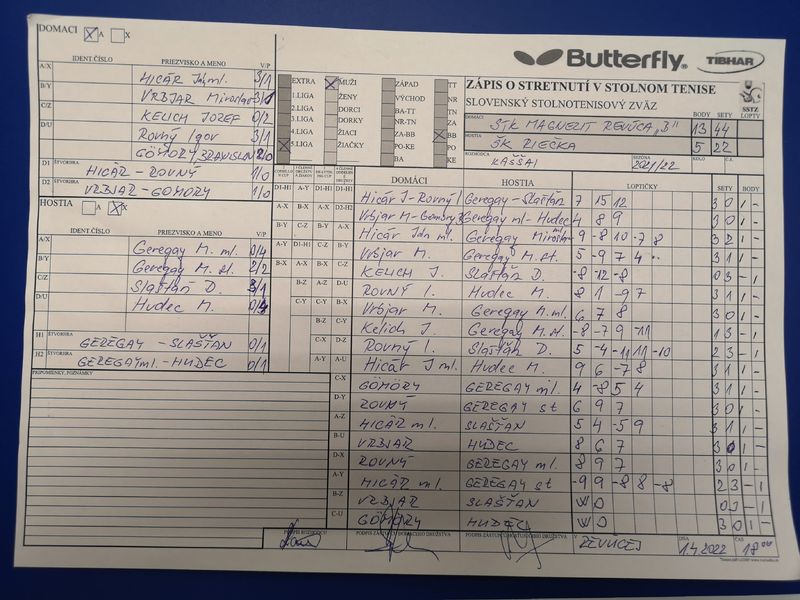 DOMACI A X
Butterfly® TIBHAR
IDENT.ČÍSLO PRIEZVISKO A MENO V/P
A/X HICÁR Ján ml. 3/1
B/Y VRBJAR Miroslav
C/Z KELICH JOZEF 0/2
D/U ROVNÝ Igor 3/1
GÖMÖRY BRANISLAV
D1 ŠTVORHRA HICÁR - ROVNÝ 1/0
D2 VRBJAR - GÖMÖRY 1/0
HOSTIA A X
IDENT.ČÍSLO PRIEZVISKO A MENO V/P
A/X Geregay M. ml. 0/4
B/Y Geregay M. st. 2/2
C/Z Slašťan D. 3/1
D/U Hudec M. 0/4
H1 ŠTVORHRA GEREGAY - SLAŠŤAN 0/1
H2 ŠTVORHRA GEREGAY ml. - HUDEC 0/1
PRIPOMIENKY, POZNÁMKY
EXTRA MUŽI ZÁPAD TT
1.LIGA ŽENY VÝCHOD NR
2.LIGA DORCI BA-TT TN
3.LIGA DORKY NR-TN ZA
4.LIGA ŽIACI ZA-BB BB
5.LIGA ŽIAČKY PO-KE PO
BA KE
ZÁPIS O STRETNUTÍ V STOLNOM TENISE
SLOVENSKÝ STOLNOTENISOVÝ ZVÄZ SSTZ
BODY SETY LOPTY
DOMÁCI STK MAGNEZIT REVÚCA "B" 13 44
HOSTIA ŠK RIEČKA 5 22
ROZHODCA KAŠŠAI SEZÓNA 2021/22 KOLO Č.Z.
DOMÁCI HOSTIA LOPTIČKY SETY BODY
D1-H1 A-Y D1-H1 D1-H1 Hicár J - Rovný I Geregay - Slašťan 7 15 12 3 0 1 -
A-X B-X A-X D2-H2 Vrbjar M - Gömöry Geregay ml - Hudec 4 8 9 3 0 1 -
B-Y C-Z B-Y A-X Hicár Ján ml. Geregay Miroslav ml 9 -8 10 -7 8 3 2 1 -
A-Y D1-H1 C-Z B-Y Vrbjar M. Geregay M. st. 5 -9 7 4 3 1 1 -
B-X A-X B-X C-Z KELICH J. Slašťan D. -8 -12 -8 0 3 - 1
B-Z A-Z D-U ROVNÝ I. Hudec M. 8 1 -9 7 3 1 1 -
C-Y C-Y B-X Vrbjar M. Geregay M. ml. 6 7 8 3 0 1 -
B-Z C-Y Kelich J. Geregay M. st. -8 -7 9 -11 1 3 - 1
C-X D-Z Rovný I. Slašťan D. 5 -4 -11 11 -10 2 3 - 1
A-Y A-U Hicár J ml. Hudec M. 9 6 -7 8 3 1 1 -
C-X GÖMÖRY GEREGAY ml. 4 -8 5 4 3 1 1 -
D-Y ROVNÝ GEREGAY st 6 9 7 3 0 1 -
A-Z HICÁR ml. SLAŠŤAN 5 4 -5 9 3 1 1 -
B-U VRBJAR HUDEC 8 6 7 3 0 1 -
D-X ROVNÝ GEREGAY ml. 8 9 7 3 0 1 -
A-Y HICÁR ml. GEREGAY st -9 9 -8 8 -8 2 3 - 1
B-Z VRBJAR SLAŠŤAN WO 0 3 - 1
C-U GÖMÖRY HUDEC WO 3 0 1 -
PODPIS ROZHODCU PODPIS ZÁSTUPCU DOMÁCEHO DRUŽSTVA PODPIS ZÁSTUPCU HOSŤUJÚCEHO DRUŽSTVA V REVÚCEJ DŇA 1.4.2022 ČAS 18 00